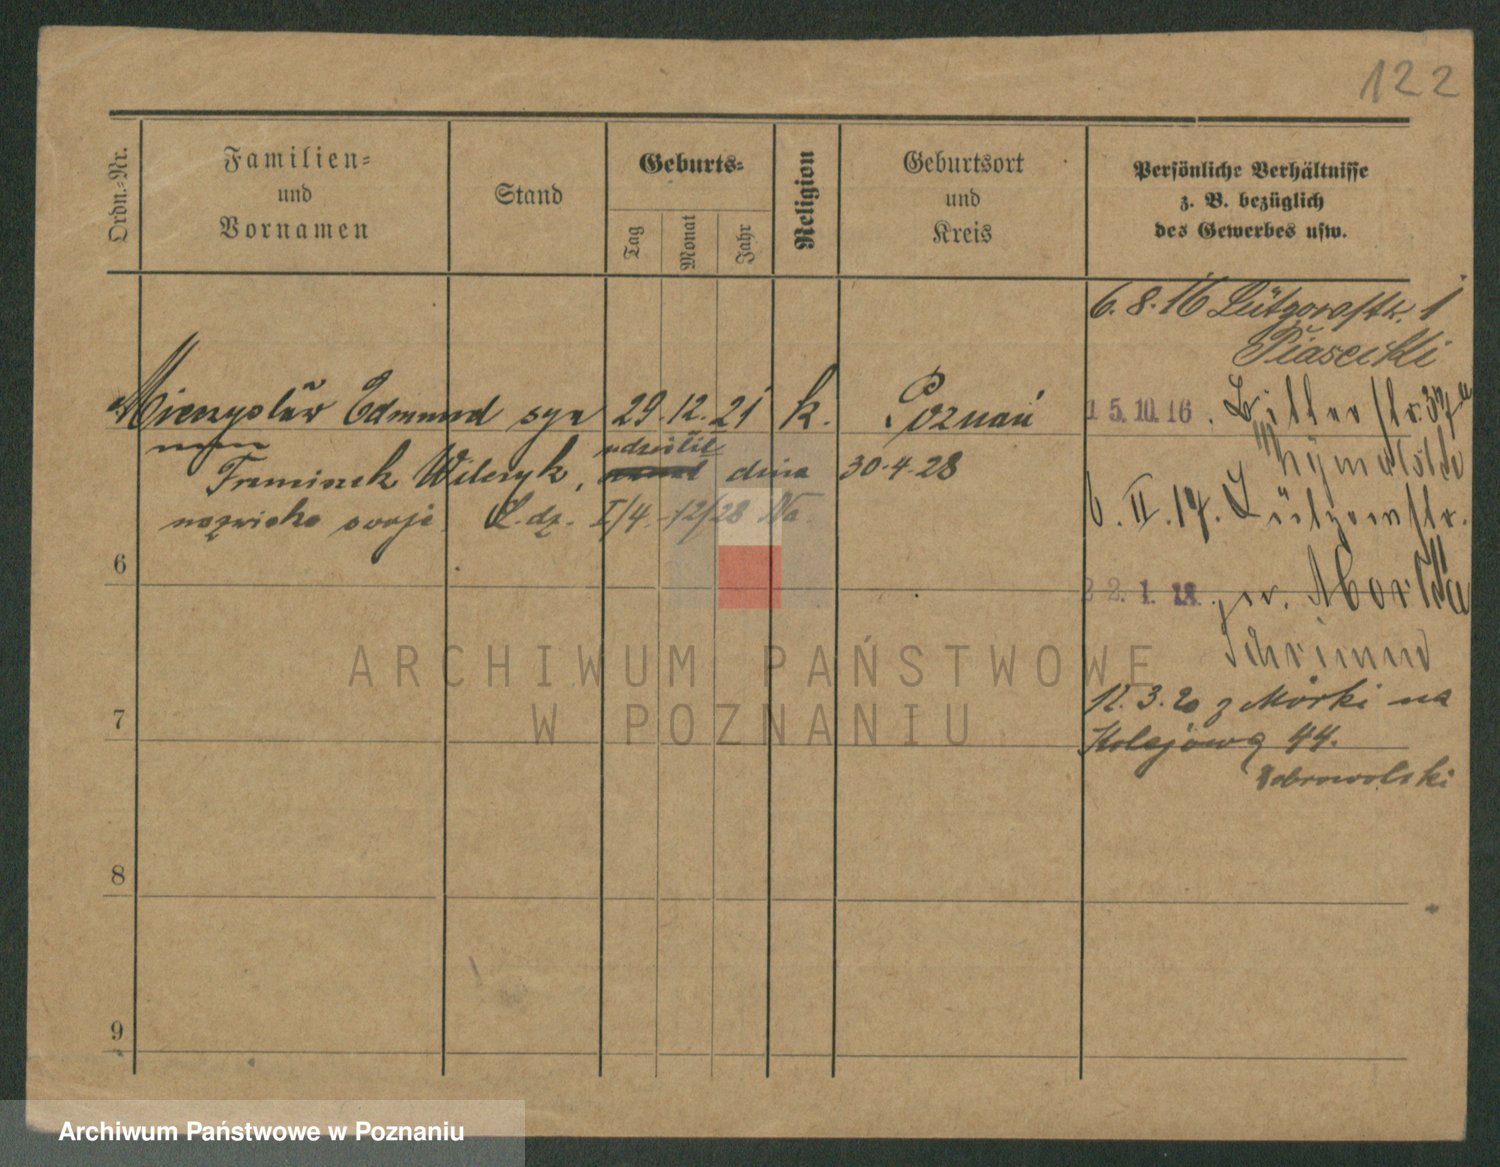 122
Ordn.=Nr.
Familien=
und
Vornamen
Stand
Geburts=
Tag
Monat
Jahr
Religion
Geburtsort
und
Kreis
Persönliche Verhältnisse
z. B. bezüglich
des Gewerbes usw.
6. 8. 16 Lützowstr. 1
Piasecki
Mieczysław Edmund syn 29. 12. 21 k. Poznań
15. 10. 16. Bitterstr. 37a
udzielił
Franciszek Wilczyk, dnia 30.4.28
nazwisko swoje L. dz. I/4. 12/28 Na.
6. II. 17. Lützowstr.
6
22. 1. 18.
Schrimm
7
11. 3. 20 z Mórki na
Kolejową 44.
Dobrowolski
8
9
ARCHIWUM PAŃSTWOWE
W POZNANIU
Archiwum Państwowe w Poznaniu